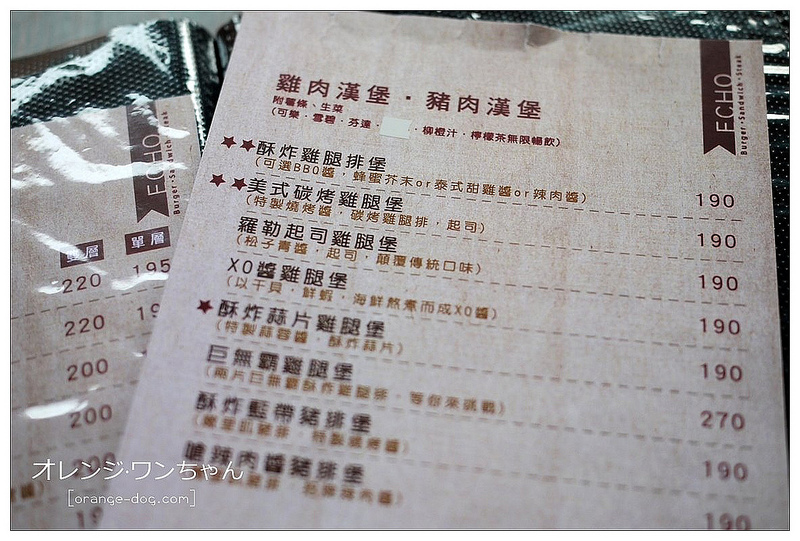 ECHO
Burger·Sandwich·Steak
雞肉漢堡·豬肉漢堡
附薯條、生菜
(可樂·雪碧·芬達· ·柳橙汁·檸檬茶無限暢飲)
★★酥炸雞腿排堡 190
(可選BBQ醬，蜂蜜芥末or泰式甜雞醬or辣肉醬)
★★美式碳烤雞腿堡 190
(特製燒烤醬，碳烤雞腿排，起司)
羅勒起司雞腿堡 190
(松子青醬，起司，顛覆傳統口味)
XO醬雞腿堡 190
(以干貝，鮮蝦，海鮮熬煮而成XO醬)
★酥炸蒜片雞腿堡 190
(特製蒜蓉醬，酥炸蒜片)
巨無霸雞腿堡 270
(兩片巨無霸酥炸雞腿排，等你來挑戰)
酥炸藍帶豬排堡 190
嗆辣肉醬豬排堡 190
ECHO
Burger·Sandwich·Steak
雙層 單層
220 195
220 19
200
200
200
19
オレンジ·ワンちゃん
[orange-dog.com]